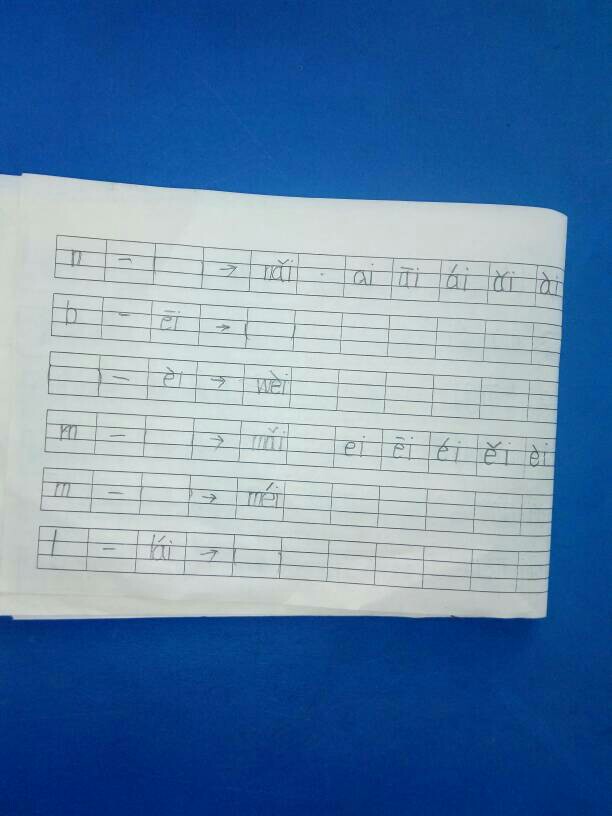 n — ( ) → nǎi · ai āi ái ǎi ài
b — ēi → ( )
( ) — èi → wèi
m — ( ) → mǎi ei ēi éi ěi èi
m — ( ) → méi
l — lái → ( )